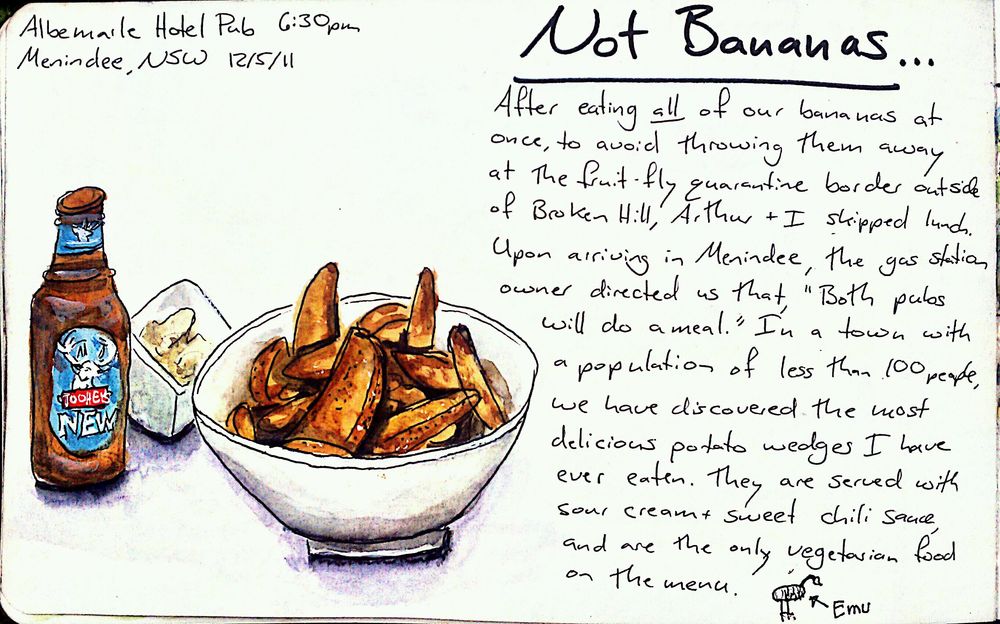 Albemarle Hotel Pub 6:30pm
Menindee, NSW 12/5/11
Not Bananas...
After eating all of our bananas at
once, to avoid throwing them away
at the fruit-fly quarantine border outside
of Broken Hill, Arthur + I skipped lunch.
Upon arriving in Menindee, the gas station
owner directed us that, "Both pubs
will do a meal." In a town with
a population of less than 100 people,
we have discovered the most
delicious potato wedges I have
ever eaten. They are served with
sour cream + sweet chili sauce,
and are the only vegetarian food
on the menu.
Emu
TOOHEYS
NEW